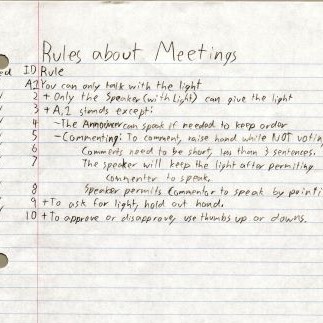 Rules about Meetings
ed ID Rule
A1 You can only talk with the light
2 + Only the Speaker (with Light) can give the light
3 + A,1 stands except:
4 - The Announcer can speak if needed to keep order
5 - Commenting: To comment, raise hand while NOT votin
6 Comments need to be short, less than 3 sentences.
7 The speaker will keep the light after permiting
commenter to speak.
8 Speaker permits Commentor to speak by pointi
9 + To ask for light, hold out hand.
10 + To approve or disapprove, use thumbs up or downs.